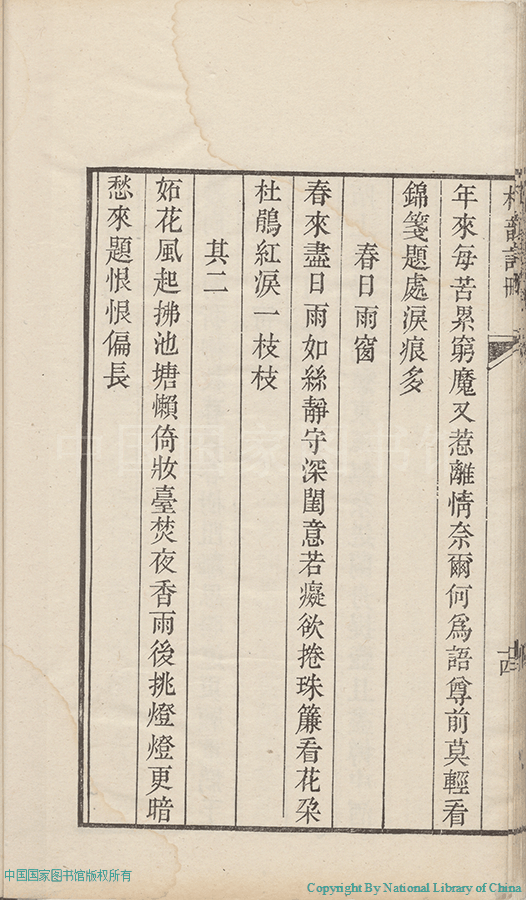 年來每苦累窮魔又惹離情奈爾何爲語尊前莫輕看
錦箋題處淚痕多
春日雨窗
春來盡日雨如絲靜守深閨意若癡欲捲珠簾看花朶
杜鵑紅淚一枝枝
其二
妬花風起拂池塘懶倚妝臺焚夜香雨後挑燈燈更暗
愁來題恨恨偏長
中国国家图书馆版权所有
Copyright By National Library of China